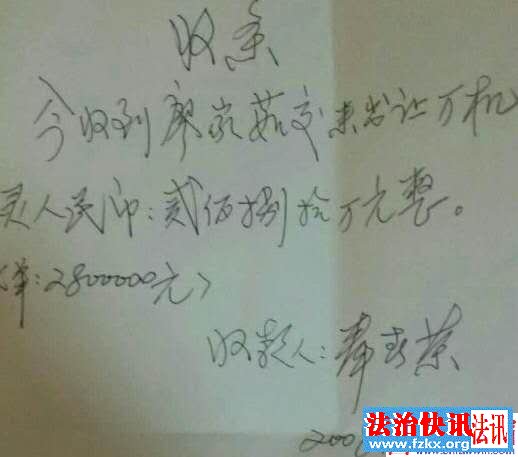 收条
今收到廖家茹交来出让万机
人民币:贰佰捌拾万元整。
:2800000元)
收款人:
200
法治快讯 法讯
www.fzkx.org